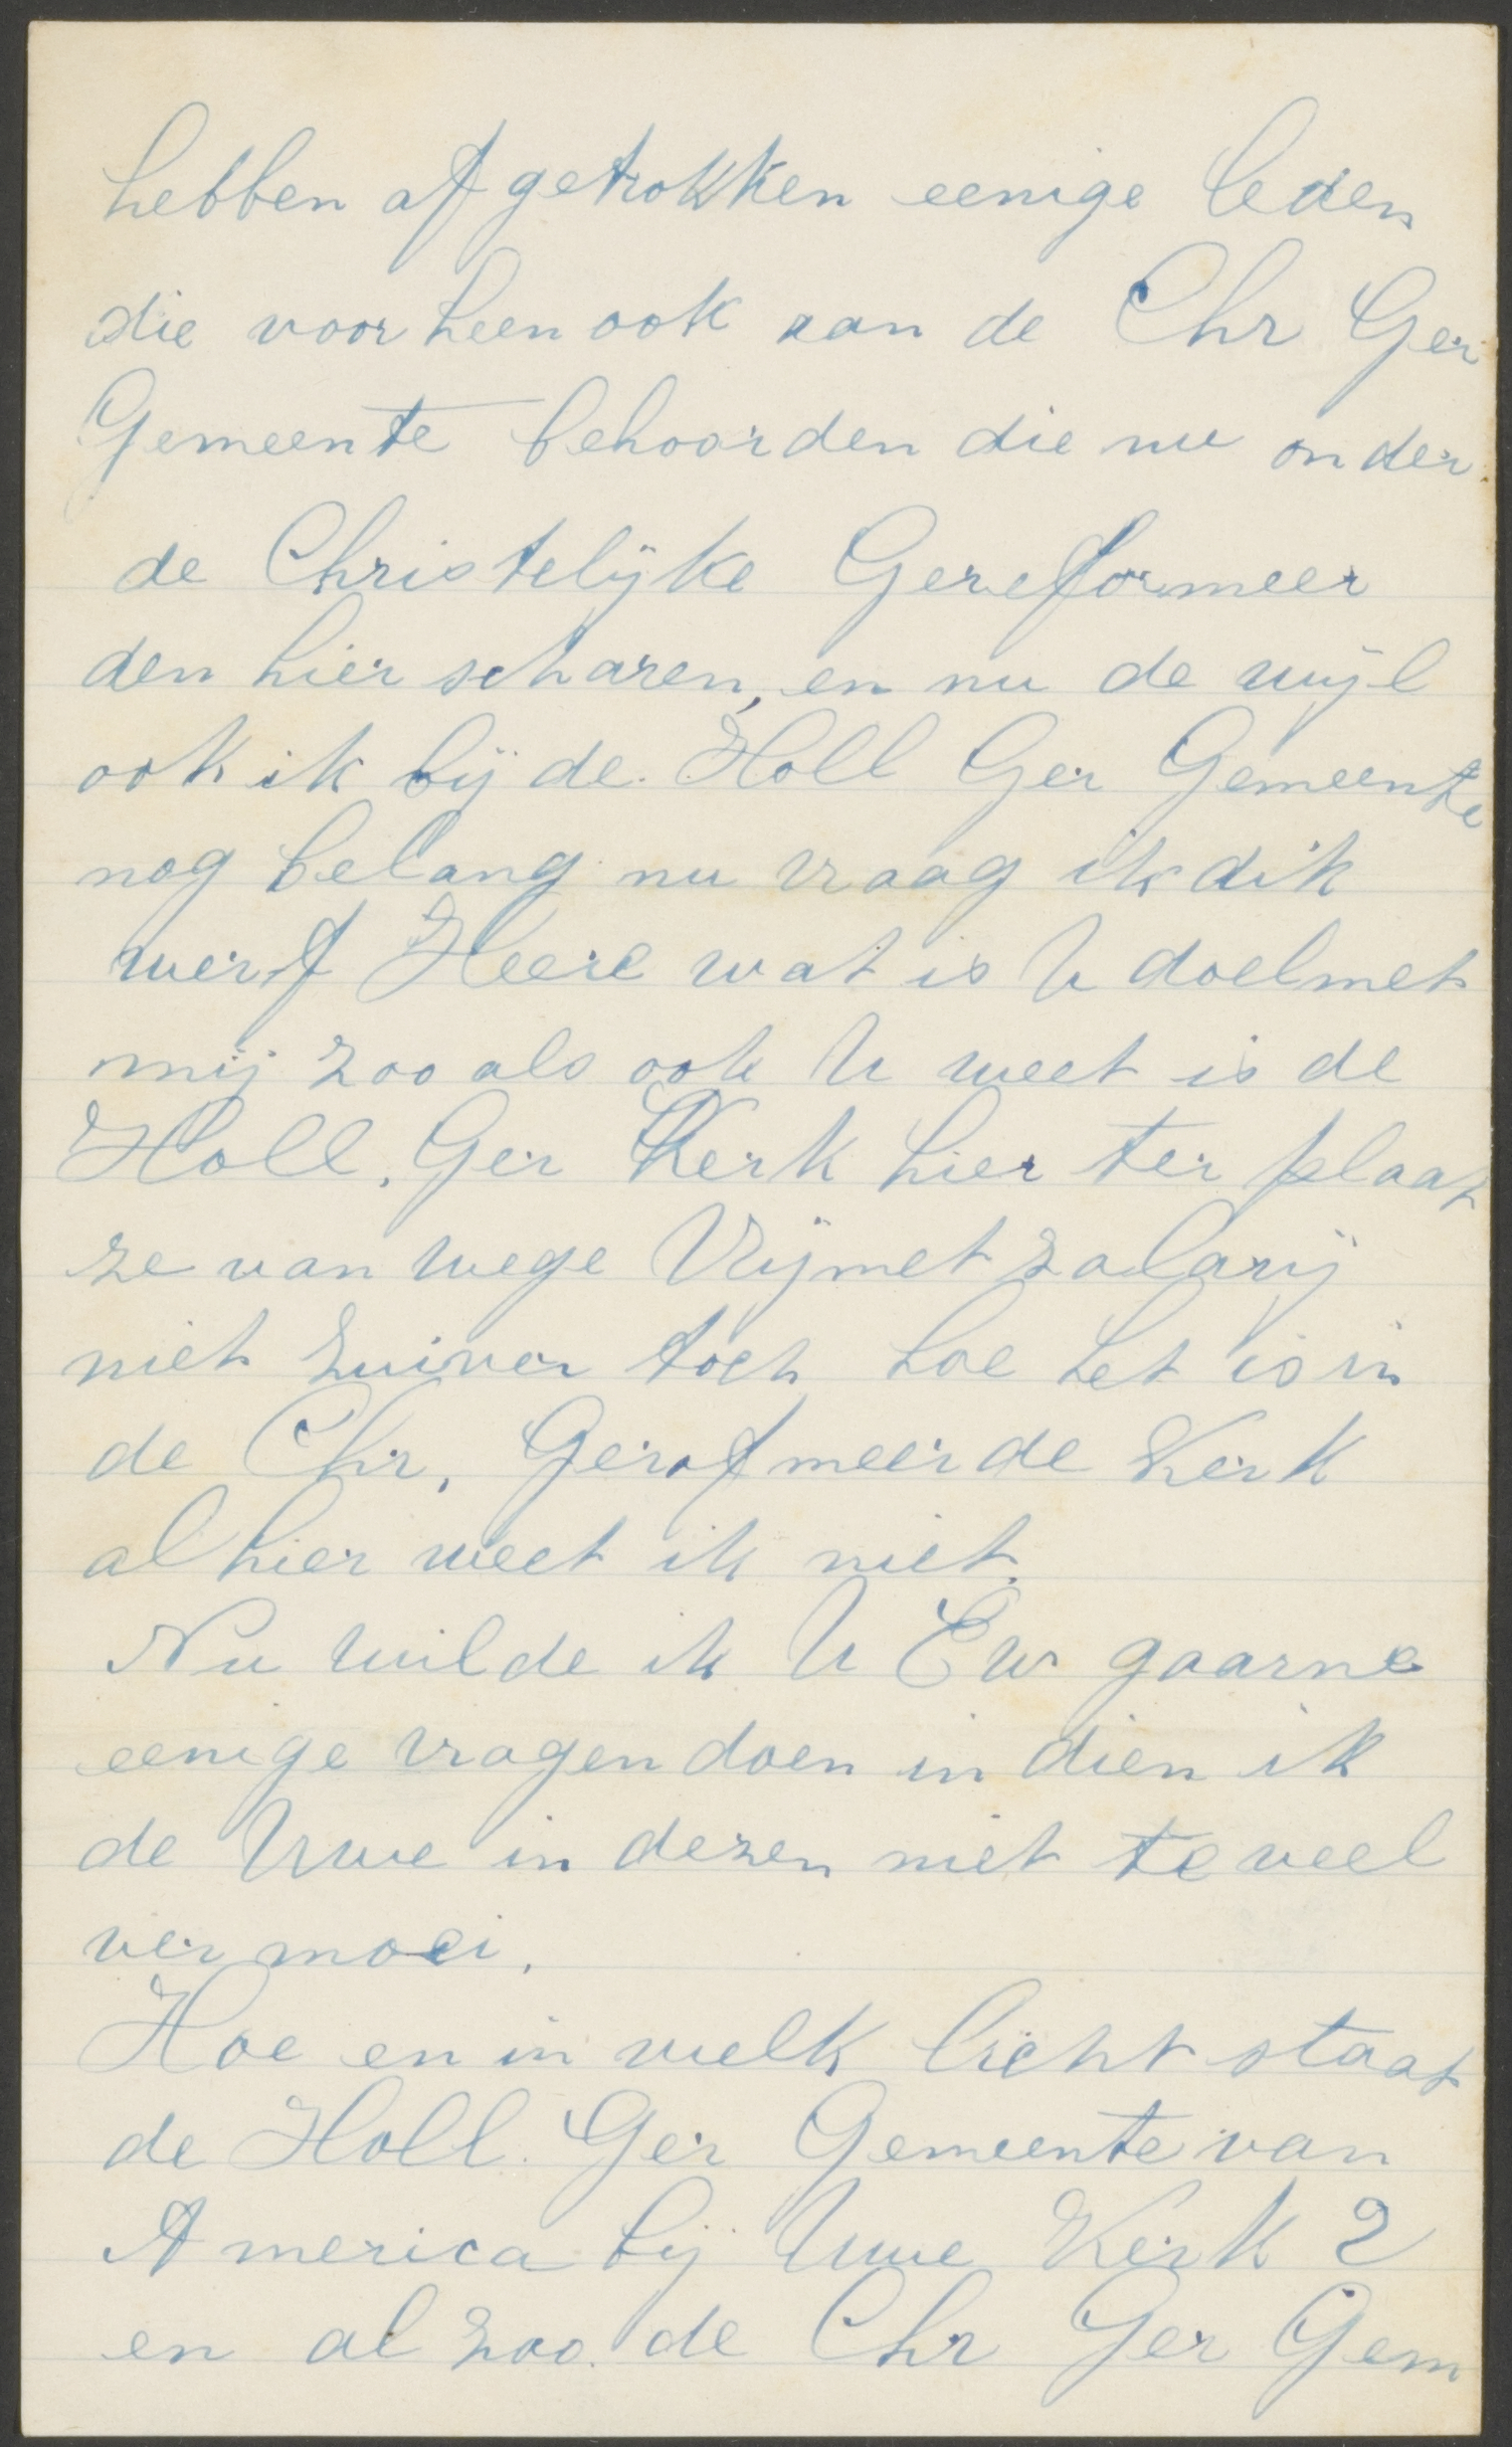 hebben afgetrokken eenige leden
die voorheen ook aan de Chr Ger
Gemeente behoorden die nu onder
de Christelijke Gereformeer
den hier scharen, en nu de wijl
ook ik bij de Holl Ger Gemeente
nog belang nu vraag ik dik
werf Heere wat is U doel met
mij zoo als ook U weet is de
Holl. Ger Kerk hier ter plaat
ze van wege Vrijmetzalarij
niet zuiver toch hoe het is in
de Chr. Gerofmeerde Kerk
alhier weet ik niet.
Nu wilde ik U Ew gaarne
eenige vragen doen in dien ik
de Uwe in dezen niet te veel
vermoei.
Hoe en in welk licht staat
de Holl. Ger Gemeente van
America bij Uwe Kerk ?
en al zoo de Chr Ger Gem